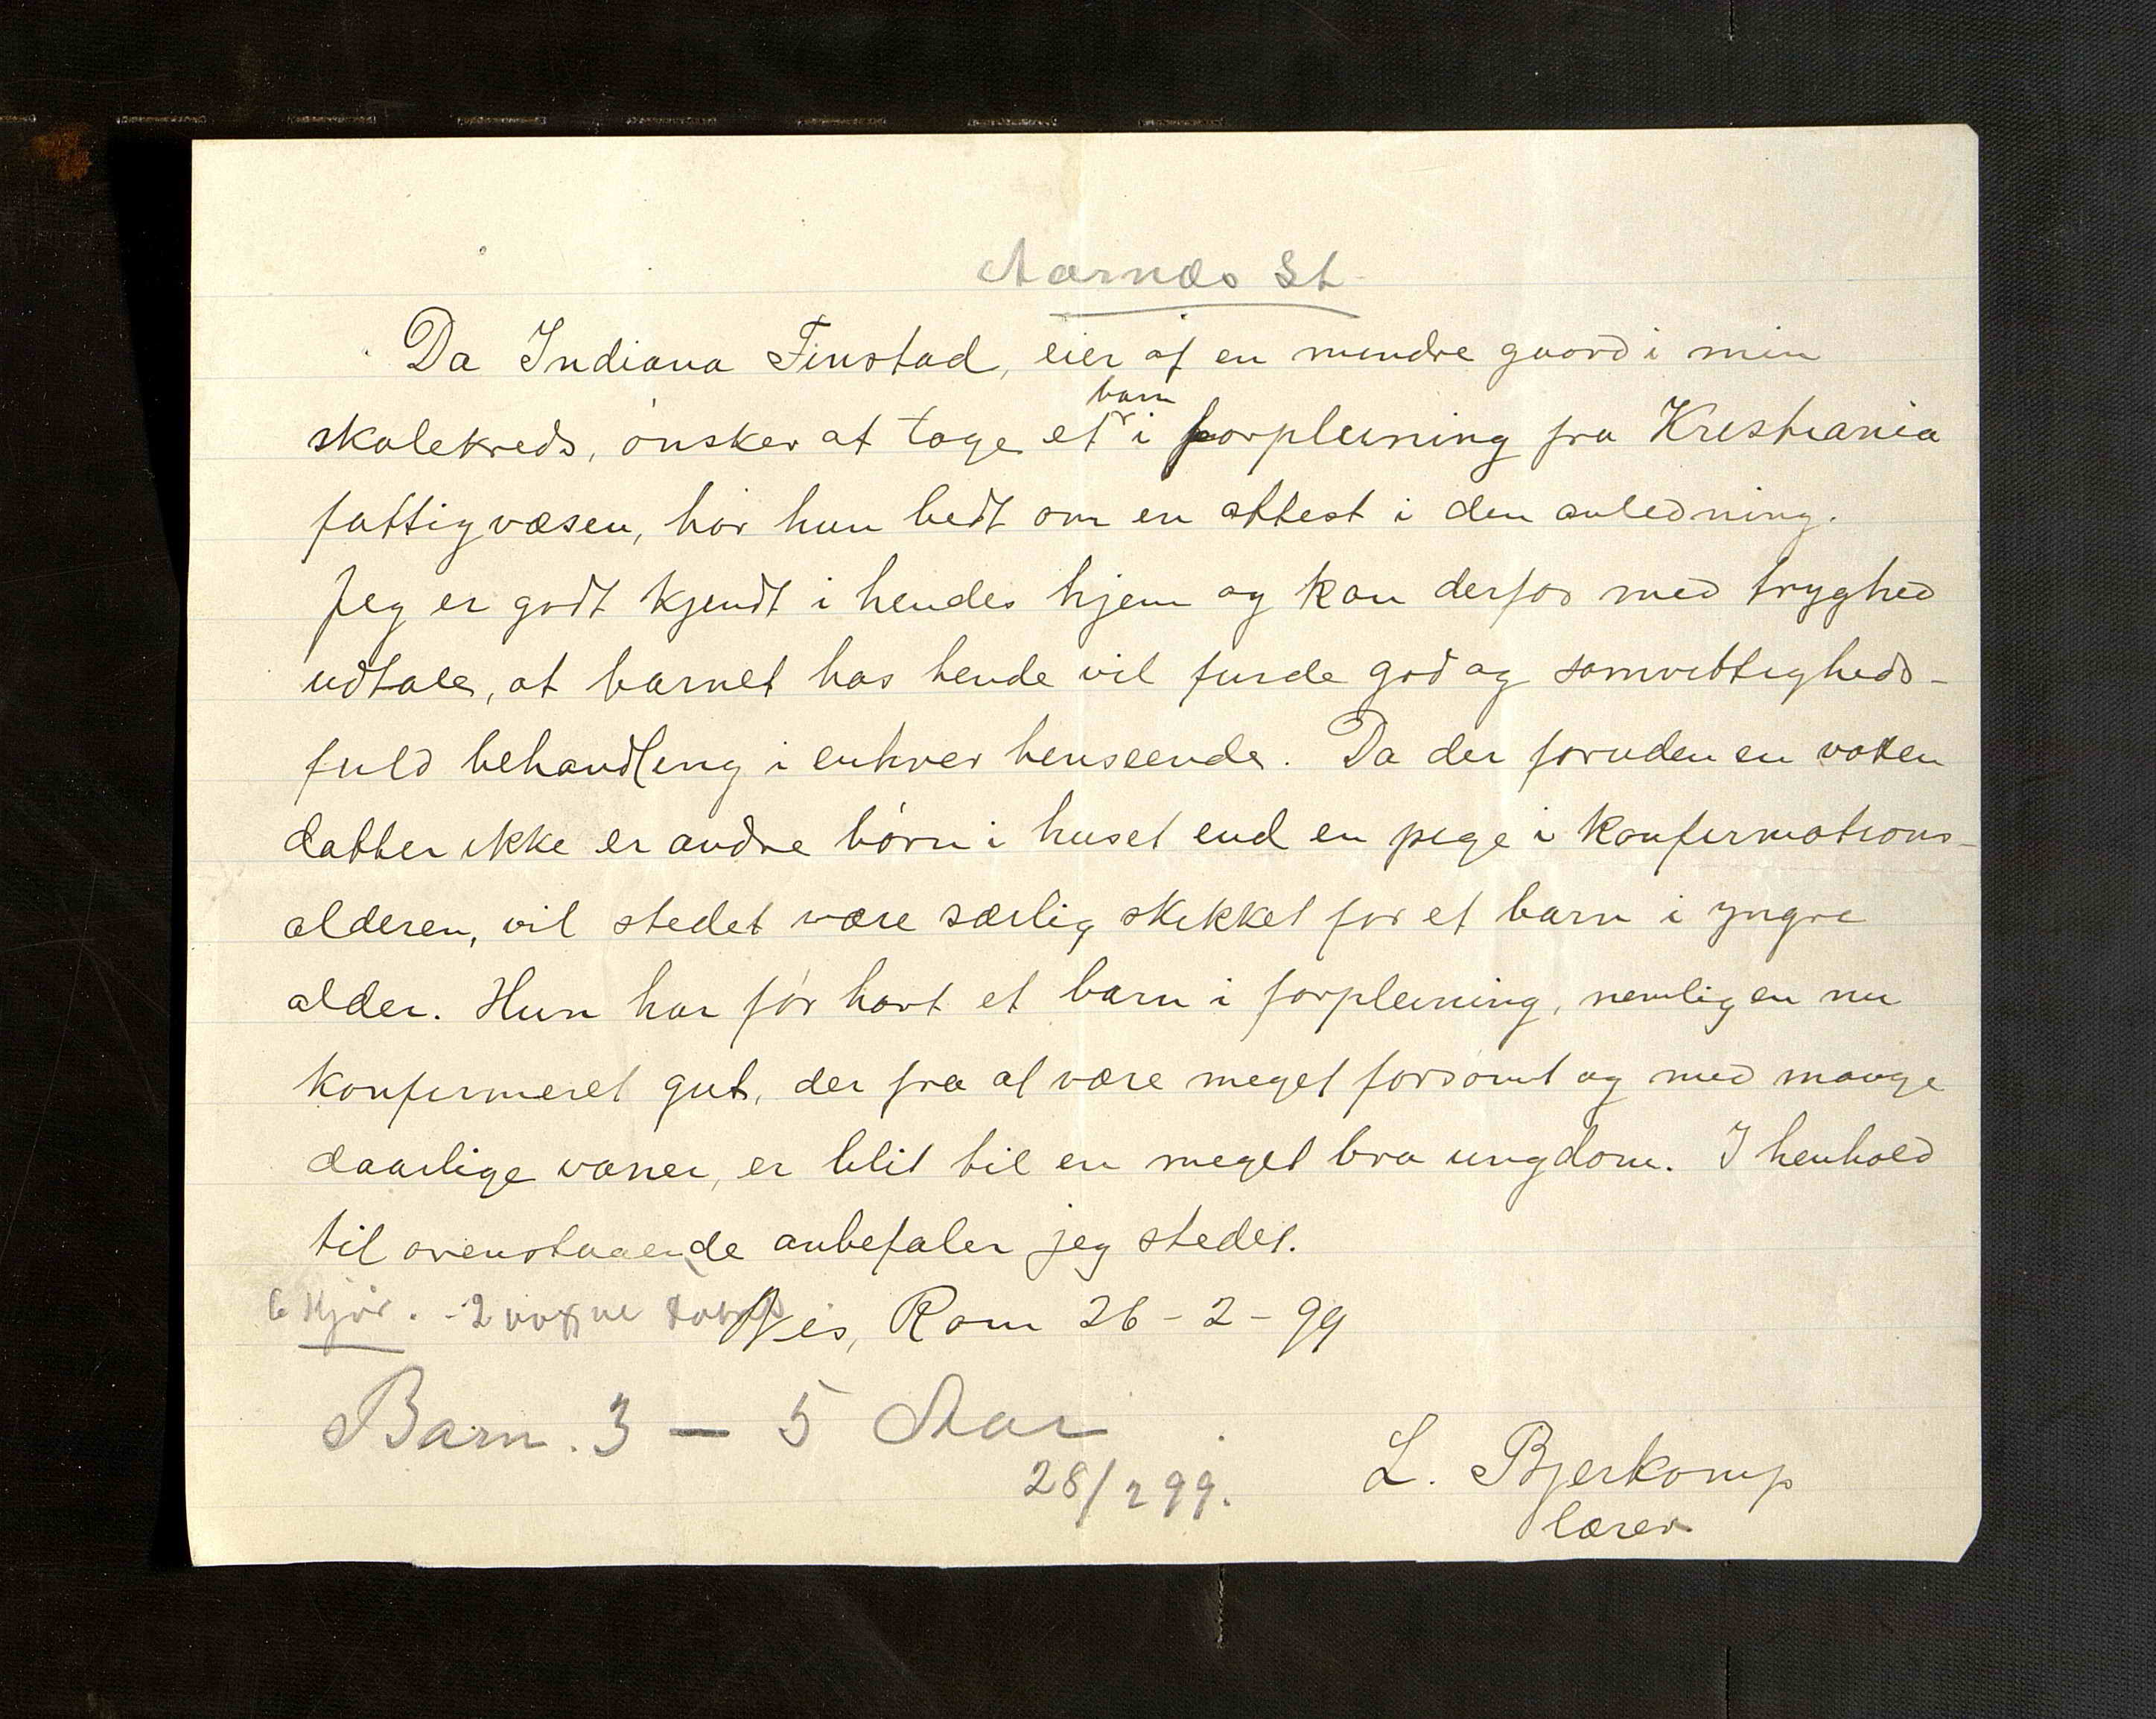 Aarnæs St
Da Indiana Finstad, eier af en mindre gaard i min
barn
skolekreds, ønsker at tage et i forpleining fra Kristiania
fattigvæsen, har hun bedt om en attest i den anledning.
Jeg er godt kjendt i hendes hjem og kan derfor med tryghed
udtale, at barnet hos hende vil finde god og samvittigheds-
fuld behandling i enhver henseende. Da der foruden en voksen
datter ikke er andre børn i huset end en pige i konfirmations-
alderen, vil stedet være særlig skikket for et barn i yngre
alder. Hun har før havt et barn i forpleining, nemlig en nu
konfirmeret gut, der fra at være meget forsømt og med mange
daarlige vaner, er blit til en meget bra ungdom. I henhold
til ovenstaaende anbefaler jeg stedet.
6 Kjør. - 2 voxne
Nes, Rom 26-2-99
Barn. 3 — 5 Aar
28/2 99.
L. Bjerkomp
lærer